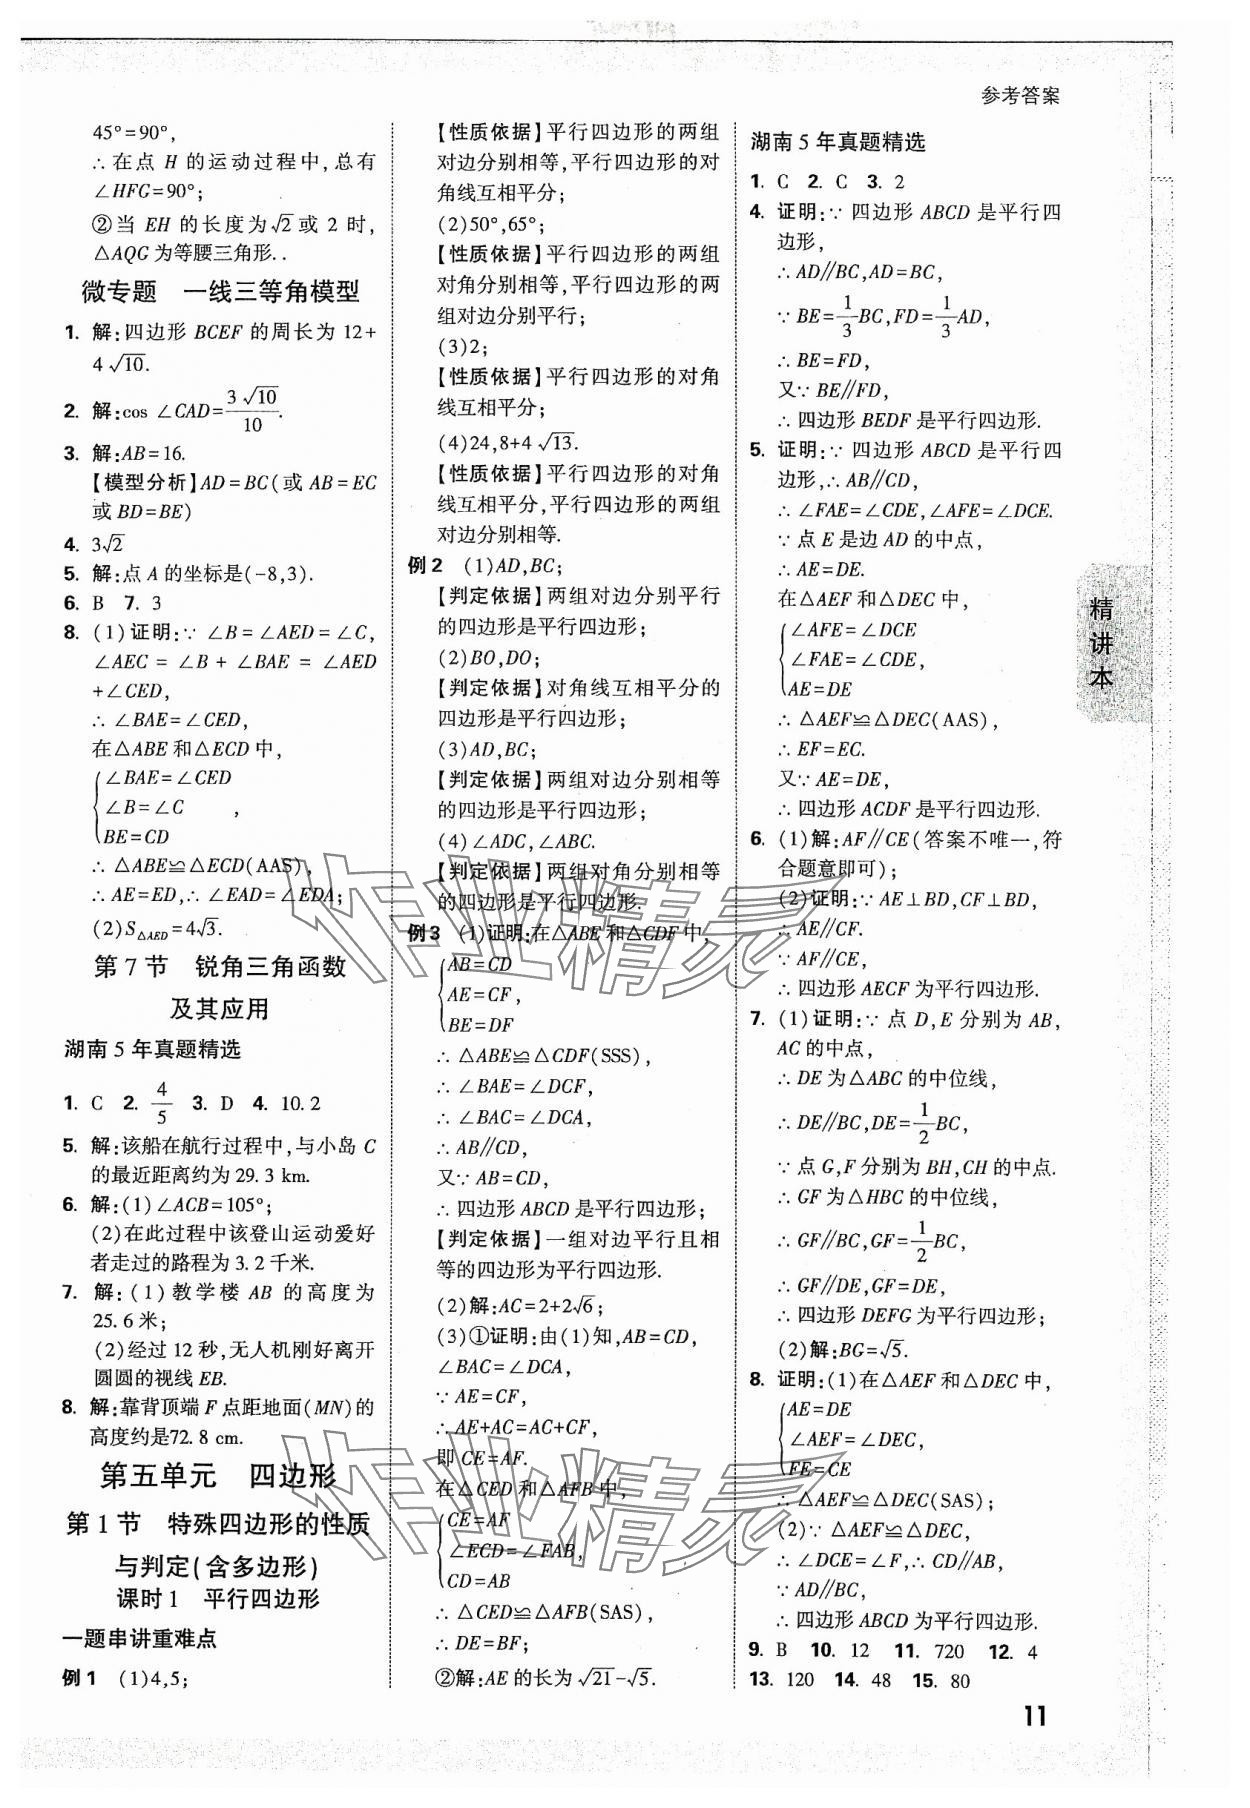 参考答案
45°=90°,
∴在点 H 的运动过程中,总有
∠HFG=90°;
②当 EH 的长度为√2或 2 时,
△AQG 为等腰三角形..
微专题 一线三等角模型
1. 解:四边形 BCEF 的周长为 12+
4√10.
2. 解:cos ∠CAD=3√10/10.
3. 解:AB=16.
【模型分析】AD=BC(或 AB=EC
或 BD=BE)
4. 3√2
5. 解:点 A 的坐标是(-8,3).
6. B 7. 3
8. (1)证明:∵ ∠B=∠AED=∠C,
∠AEC = ∠B + ∠BAE = ∠AED
+∠CED,
∴ ∠BAE=∠CED,
在△ABE 和△ECD 中,
∠BAE=∠CED
∠B=∠C ,
BE=CD
∴ △ABE≌△ECD(AAS),
∴ AE=ED,∴ ∠EAD=∠EDA;
(2)S△AED=4√3.
第 7 节 锐角三角函数
及其应用
湖南 5 年真题精选
1. C 2. 4/5 3. D 4. 10.2
5. 解:该船在航行过程中,与小岛 C
的最近距离约为 29.3 km.
6. 解:(1)∠ACB=105°;
(2)在此过程中该登山运动爱好
者走过的路程为 3.2 千米.
7. 解:(1)教学楼 AB 的高度为
25.6 米;
(2)经过 12 秒,无人机刚好离开
圆圆的视线 EB.
8. 解:靠背顶端 F 点距地面(MN)的
高度约是72.8 cm.
第五单元 四边形
第 1 节 特殊四边形的性质
与判定(含多边形)
课时 1 平行四边形
一题串讲重难点
例 1 (1)4,5;
【性质依据】平行四边形的两组
对边分别相等,平行四边形的对
角线互相平分;
(2)50°,65°;
【性质依据】平行四边形的两组
对角分别相等,平行四边形的两
组对边分别平行;
(3)2;
【性质依据】平行四边形的对角
线互相平分;
(4)24,8+4√13.
【性质依据】平行四边形的对角
线互相平分,平行四边形的两组
对边分别相等.
例 2 (1)AD,BC;
【判定依据】两组对边分别平行
的四边形是平行四边形;
(2)BO,DO;
【判定依据】对角线互相平分的
四边形是平行四边形;
(3)AD,BC;
【判定依据】两组对边分别相等
的四边形是平行四边形;
(4)∠ADC,∠ABC.
【判定依据】两组对角分别相等
的四边形是平行四边形.
例 3 (1)证明:在△ABE 和△CDF 中,
AB=CD
AE=CF,
BE=DF
∴ △ABE≌△CDF(SSS),
∴ ∠BAE=∠DCF,
∴ ∠BAC=∠DCA,
∴ AB∥CD,
又∵ AB=CD,
∴ 四边形 ABCD 是平行四边形;
【判定依据】一组对边平行且相
等的四边形为平行四边形.
(2)解:AC=2+2√6;
(3)①证明:由(1)知,AB=CD,
∠BAC=∠DCA,
∵ AE=CF,
∴ AE+AC=AC+CF,
即 CE=AF.
在△CED 和△AFB 中,
CE=AF
∠ECD=∠FAB,
CD=AB
∴ △CED≌△AFB(SAS),
∴ DE=BF;
②解:AE 的长为 √21-√5.
湖南 5 年真题精选
1. C 2. C 3. 2
4. 证明:∵ 四边形 ABCD 是平行四
边形,
∴ AD∥BC,AD=BC,
∵ BE=1/3BC,FD=1/3AD,
∴ BE=FD,
又∵ BE∥FD,
∴ 四边形 BEDF 是平行四边形.
5. 证明:∵ 四边形 ABCD 是平行四
边形,∴ AB∥CD,
∴ ∠FAE=∠CDE,∠AFE=∠DCE.
∵ 点 E 是边 AD 的中点,
∴ AE=DE.
在△AEF 和△DEC 中,
∠AFE=∠DCE
∠FAE=∠CDE,
AE=DE
∴ △AEF≌△DEC(AAS),
∴ EF=EC.
又∵ AE=DE,
∴ 四边形 ACDF 是平行四边形.
6. (1)解:AF∥CE(答案不唯一,符
合题意即可);
(2)证明:∵ AE⊥BD,CF⊥BD,
∴ AE∥CF.
∵ AF∥CE,
∴ 四边形 AECF 为平行四边形.
7. (1)证明:∵ 点 D,E 分别为 AB,
AC 的中点,
∴ DE 为△ABC 的中位线,
∴ DE∥BC,DE=1/2BC,
∵ 点 G,F 分别为 BH,CH 的中点.
∴ GF 为△HBC 的中位线,
∴ GF∥BC,GF=1/2BC,
∴ GF∥DE,GF=DE,
∴ 四边形 DEFG 为平行四边形;
(2)解:BG=√5.
8. 证明:(1)在△AEF 和△DEC 中,
AE=DE
∠AEF=∠DEC,
FE=CE
∴ △AEF≌△DEC(SAS);
(2)∵ △AEF≌△DEC,
∴ ∠DCE=∠F,∴ CD∥AB,
∵ AD∥BC,
∴ 四边形 ABCD 为平行四边形.
9. B 10. 12 11. 720 12. 4
13. 120 14. 48 15. 80
精讲本
作业精灵
作业精灵
11